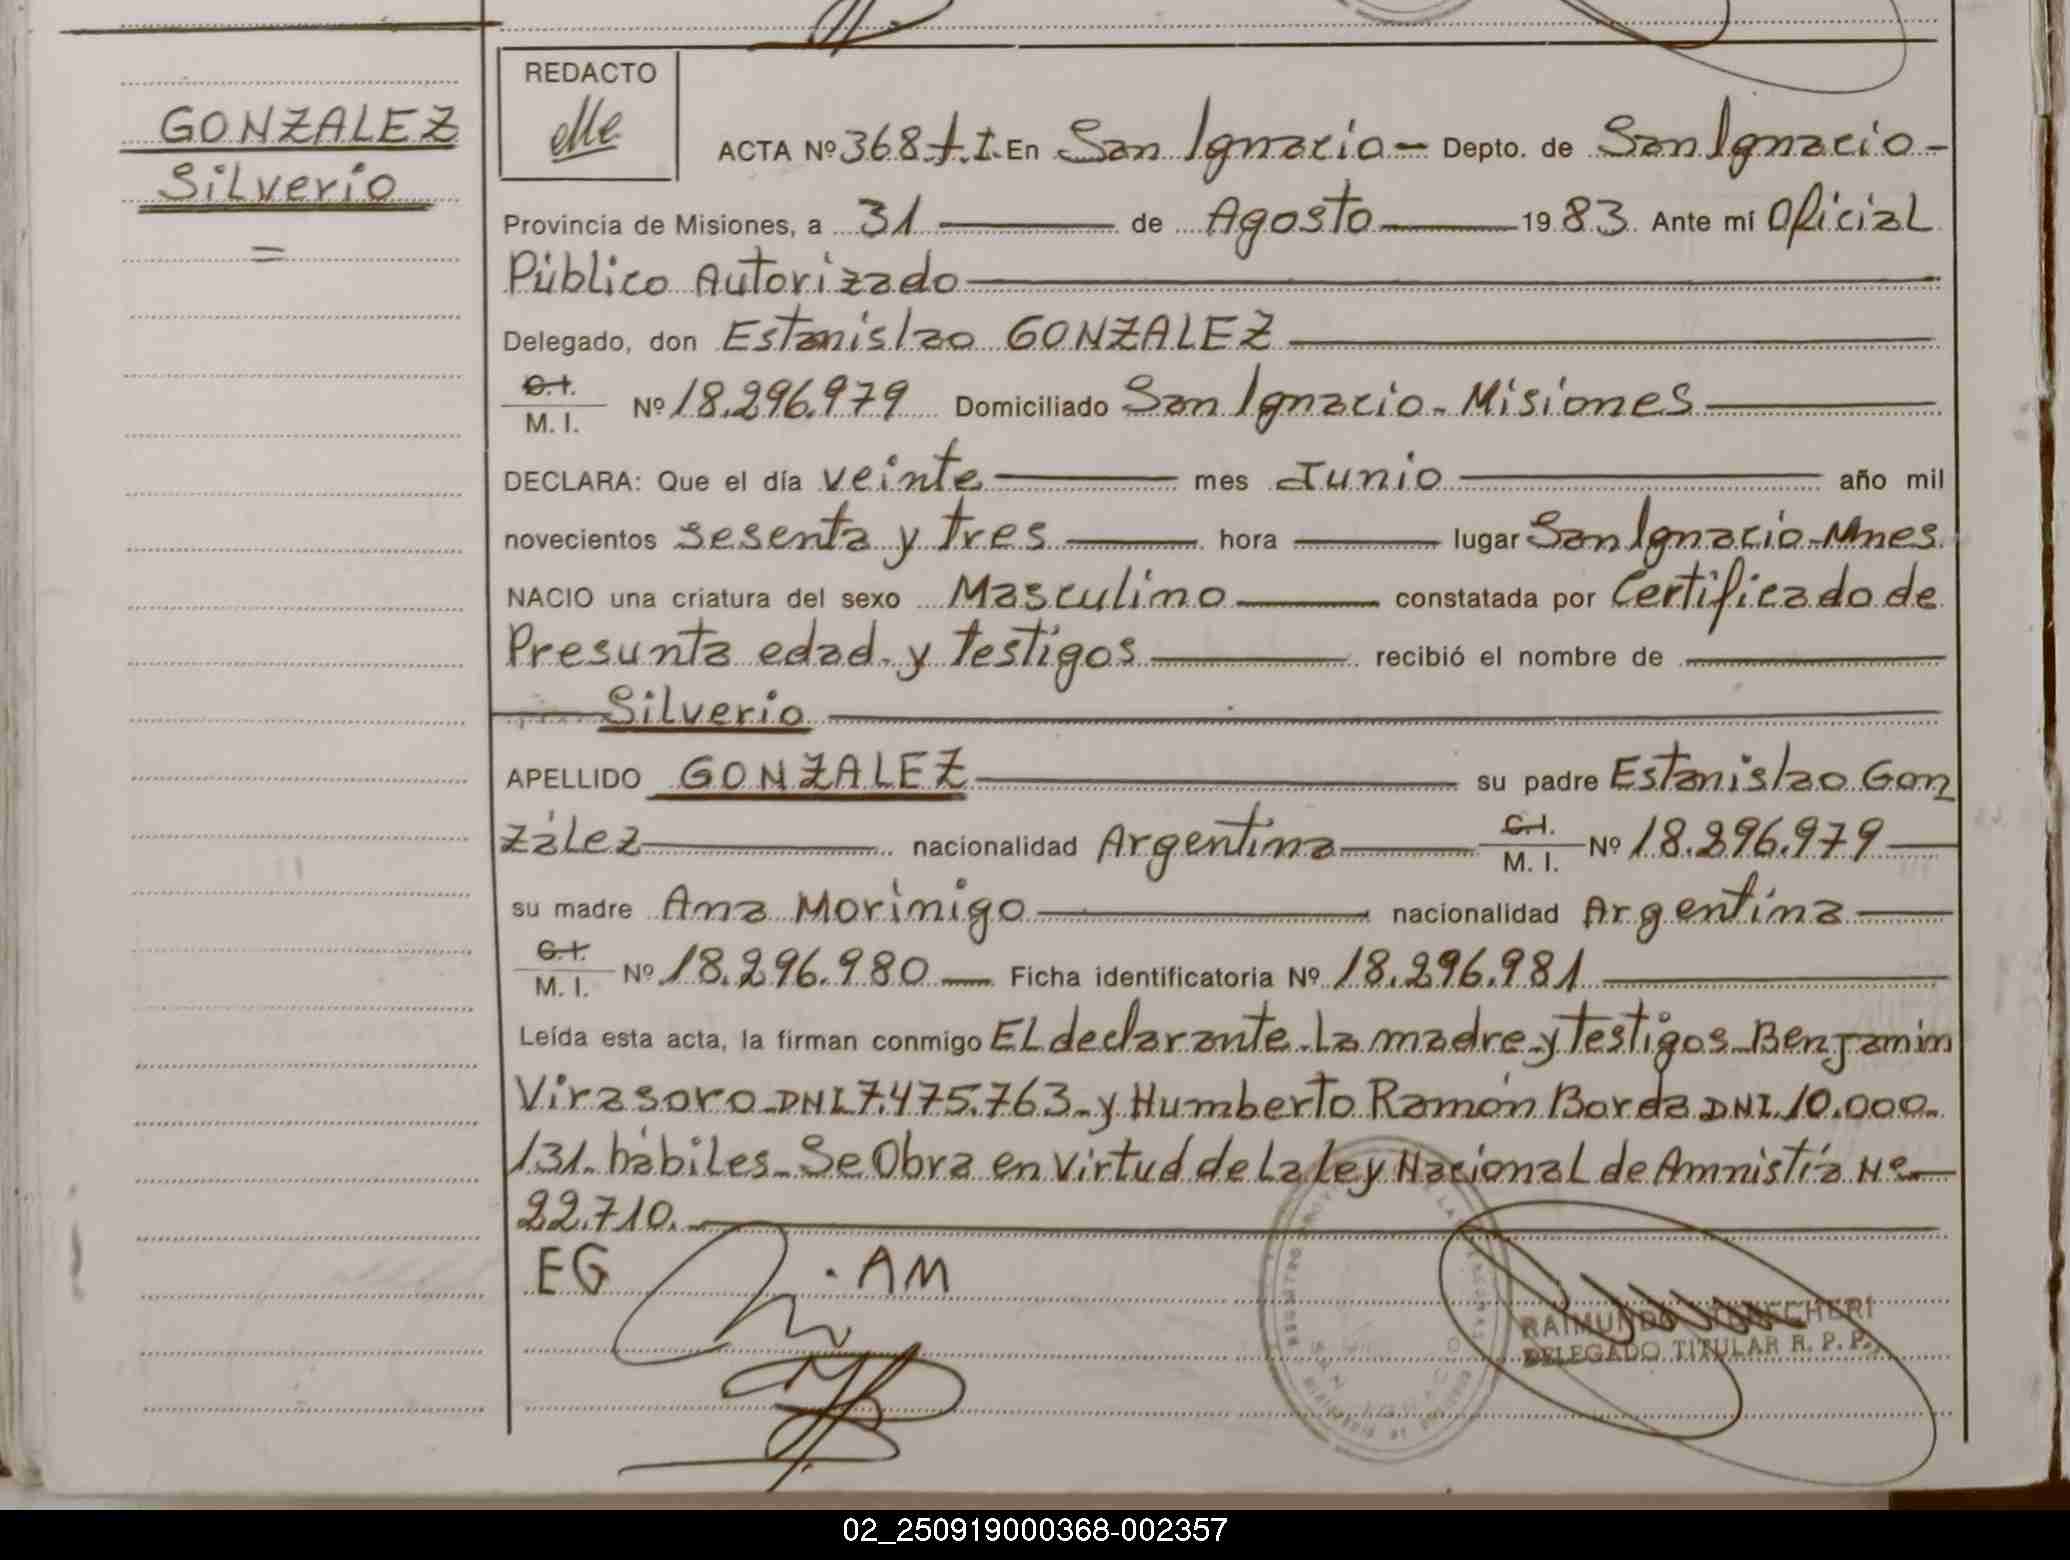 GONZALEZ
Silverio
=
REDACTO
ACTA Nº 368 f. I. En San Ignacio - Depto. de San Ignacio -
Provincia de Misiones, a 31 de Agosto 1983. Ante mí Oficial
Público Autorizado
Delegado, don Estanislao GONZALEZ
C.I. / M. I. Nº 18.296.979 Domiciliado San Ignacio - Misiones
DECLARA: Que el día veinte mes Junio año mil
novecientos sesenta y tres hora lugar San Ignacio - Mnes.
NACIO una criatura del sexo Masculino constatada por Certificado de
Presunta edad y testigos recibió el nombre de
Silverio
APELLIDO GONZALEZ su padre Estanislao Gon
zález nacionalidad Argentina C.I. / M. I. Nº 18.296.979
su madre Ana Morinigo nacionalidad Argentina
C.I. / M. I. Nº 18.296.980 Ficha identificatoria Nº 18.296.981
Leída esta acta, la firman conmigo El declarante. La madre y testigos Benjamin
Virasoro DNI 7.475.763 - y Humberto Ramón Borda DNI. 10.000.
131. hábiles - Se Obra en virtud de La Ley Nacional de Amnistía Nº
22.710.
EG . AM
RAIMUNDO
DELEGADO TITULAR R. P. P.
02_250919000368-002357